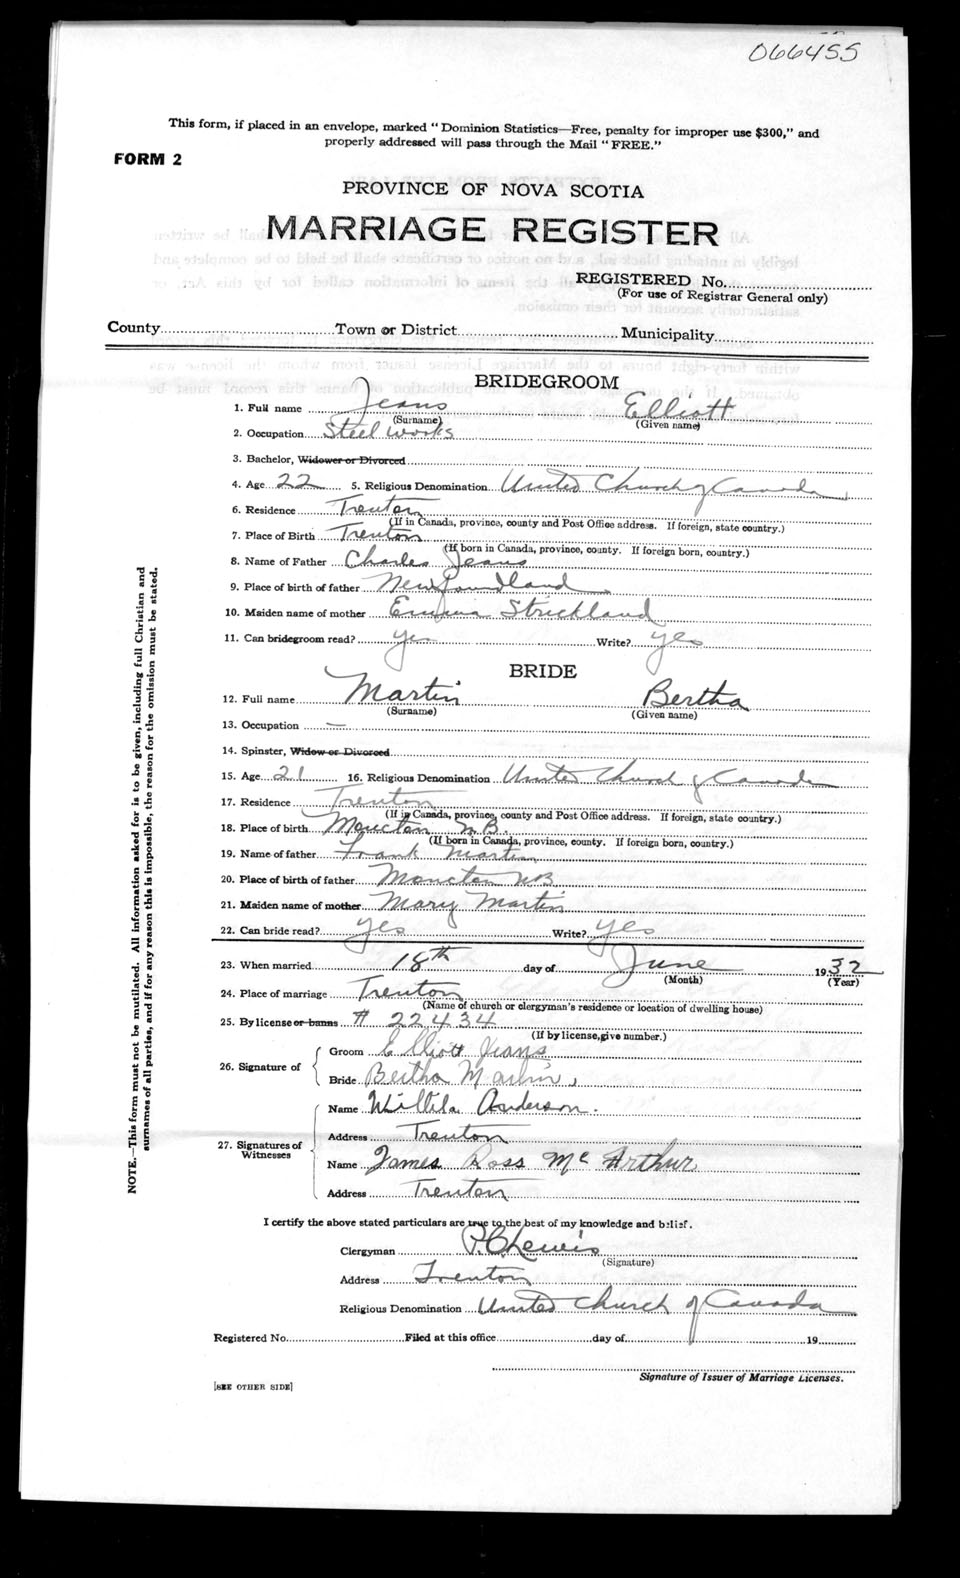 066455
This form, if placed in an envelope, marked " Dominion Statistics—Free, penalty for improper use $300," and
properly addressed will pass through the Mail " FREE."
FORM 2
PROVINCE OF NOVA SCOTIA
MARRIAGE REGISTER
REGISTERED No.
(For use of Registrar General only)
County Town or District Municipality
BRIDEGROOM
1. Full name Jeans Elliott
(Surname) (Given name)
2. Occupation Steel works
3. Bachelor, Widower or Divorced
4. Age 22 5. Religious Denomination United Church of Canada
6. Residence Trenton
(If in Canada, province, county and Post Office address. If foreign, state country.)
7. Place of Birth Trenton
(If born in Canada, province, county. If foreign born, country.)
8. Name of Father Charles Jeans
9. Place of birth of father Newfoundland
10. Maiden name of mother Emma Strickland
11. Can bridegroom read? yes Write? yes
BRIDE
12. Full name Martin Bertha
(Surname) (Given name)
13. Occupation —
14. Spinster, Widow or Divorced
15. Age 21 16. Religious Denomination United Church of Canada
17. Residence Trenton
(If in Canada, province, county and Post Office address. If foreign, state country.)
18. Place of birth Moncton N.B.
(If born in Canada, province, county. If foreign born, country.)
19. Name of father Frank Martin
20. Place of birth of father Moncton NB
21. Maiden name of mother Mary Martin
22. Can bride read? yes Write? yes
23. When married 18th day of June 1932
(Month) (Year)
24. Place of marriage Trenton
(Name of church or clergyman's residence or location of dwelling house)
25. By license or banns # 22434
(If by license, give number.)
26. Signature of
Groom Elliott Jeans
Bride Bertha Martin
27. Signatures of Witnesses
Name Anderson.
Address Trenton
Name James Ross McArthur
Address Trenton
I certify the above stated particulars are true to the best of my knowledge and belief.
Clergyman P.C. Lewis
(Signature)
Address Trenton
Religious Denomination United Church of Canada
Registered No. Filed at this office day of 19
Signature of Issuer of Marriage Licenses.
[SEE OTHER SIDE]
NOTE.—This form must not be mutilated. All information asked for is to be given, including full Christian and
surnames of all parties, and if for any reason this is impossible, the reason for the omission must be stated.